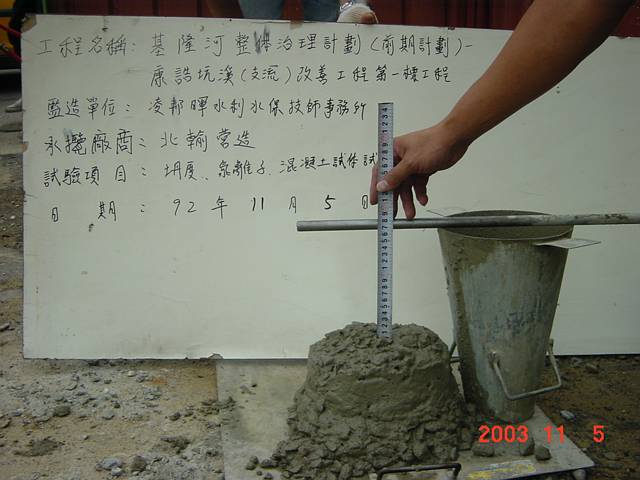 工程名稱：基隆河整体治理計劃(前期計劃)-
康誥坑溪(支流)改善工程第一標工程
監造單位：凌邦暉水利水保技師事務所
承攬廠商：北輸營造
試驗項目：坍度、氯離子、混凝土試体試
日期：92年11月5日
2003 11 5